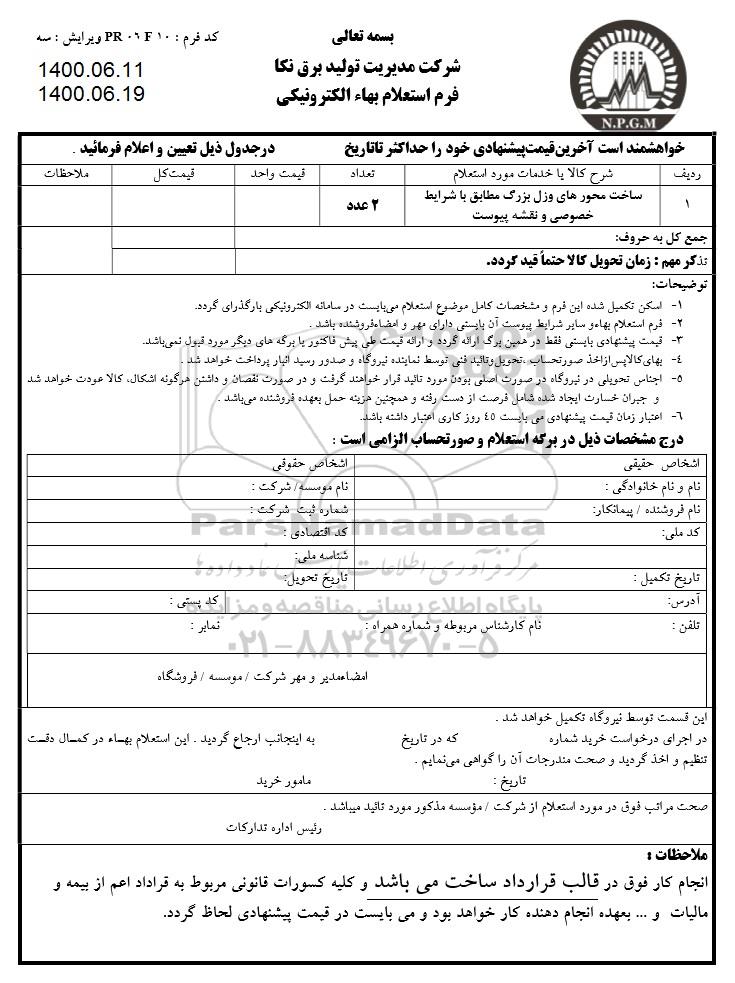 بسمه تعالی
کد فرم : PR ۰۶ F ۱۰ ویرایش : سه
شرکت مدیریت تولید برق نکا
1400.06.11
فرم استعلام بهاء الکترونیکی
1400.06.19
N.P.G.M
خواهشمند است آخرین‌قیمت‌پیشنهادی خود را حداکثر تاتاریخ درجدول ذیل تعیین و اعلام فرمائید .
ردیف شرح کالا یا خدمات مورد استعلام تعداد قیمت واحد قیمت‌کل ملاحظات
۱ ساخت محور های وزل بزرگ مطابق با شرایط ۲ عدد
خصوصی و نقشه پیوست
جمع کل به حروف:
تذکر مهم : زمان تحویل کالا حتماً قید گردد.
توضیحات:
۱- اسکن تکمیل شده این فرم و مشخصات کامل موضوع استعلام می‌بایست در سامانه الکترونیکی بارگذرای گردد.
۲- فرم استعلام بهاءو سایر شرایط پیوست آن بایستی دارای مهر و امضاءفروشنده باشد .
۳- قیمت پیشنهادی بایستی فقط در همین برگ ارائه گردد و ارائه قیمت طی پیش فاکتور یا برگه های دیگر مورد قبول نمی‌باشد.
۴- بهای‌کالاپس‌ازاخذ صورتحساب ،تحویل‌وتائید فنی توسط نماینده نیروگاه و صدور رسید انبار پرداخت خواهد شد .
۵- اجناس تحویلی در نیروگاه در صورت اصلی بودن مورد تائید قرار خواهند گرفت و در صورت نقصان و داشتن هرگونه اشکال، کالا عودت خواهد شد
و جبران خسارت ایجاد شده شامل فرصت از دست رفته و همچنین هزینه حمل بعهده فروشنده می‌باشد .
۶- اعتبار زمان قیمت پیشنهادی می بایست ۴۵ روز کاری اعتبار داشته باشد.
درج مشخصات ذیل در برگه استعلام و صورتحساب الزامی است :
اشخاص حقیقی اشخاص حقوقی
نام و نام خانوادگی : نام موسسه/ شرکت :
نام فروشنده / پیمانکار: شماره ثبت شرکت :
ParsNamadData
کد ملی: کد اقتصادی :
شناسه ملی:
مرکز فرآوری اطلاعات پارس نماد داده‌ها
تاریخ تکمیل : تاریخ تحویل:
آدرس: کد پستی :
پایگاه اطلاع رسانی مناقصه و مزایده
تلفن : نام کارشناس مربوطه و شماره همراه : نمابر :
۰۲۱-۸۸۳۴۹۶۷۰-۵
امضاءمدیر و مهر شرکت / موسسه / فروشگاه
این قسمت توسط نیروگاه تکمیل خواهد شد .
در اجرای درخواست خرید شماره که در تاریخ به اینجانب ارجاع گردید . این استعلام بهاء در کمال دقت
تنظیم و اخذ گردید و صحت مندرجات آن را گواهی می‌نمایم .
تاریخ : مامور خرید
صحت مراتب فوق در مورد استعلام از شرکت / مؤسسه مذکور مورد تائید میباشد .
رئیس اداره تدارکات
ملاحظات :
انجام کار فوق در قالب قرارداد ساخت می باشد و کلیه کسورات قانونی مربوط به قراداد اعم از بیمه و
مالیات و ... بعهده انجام دهنده کار خواهد بود و می بایست در قیمت پیشنهادی لحاظ گردد.